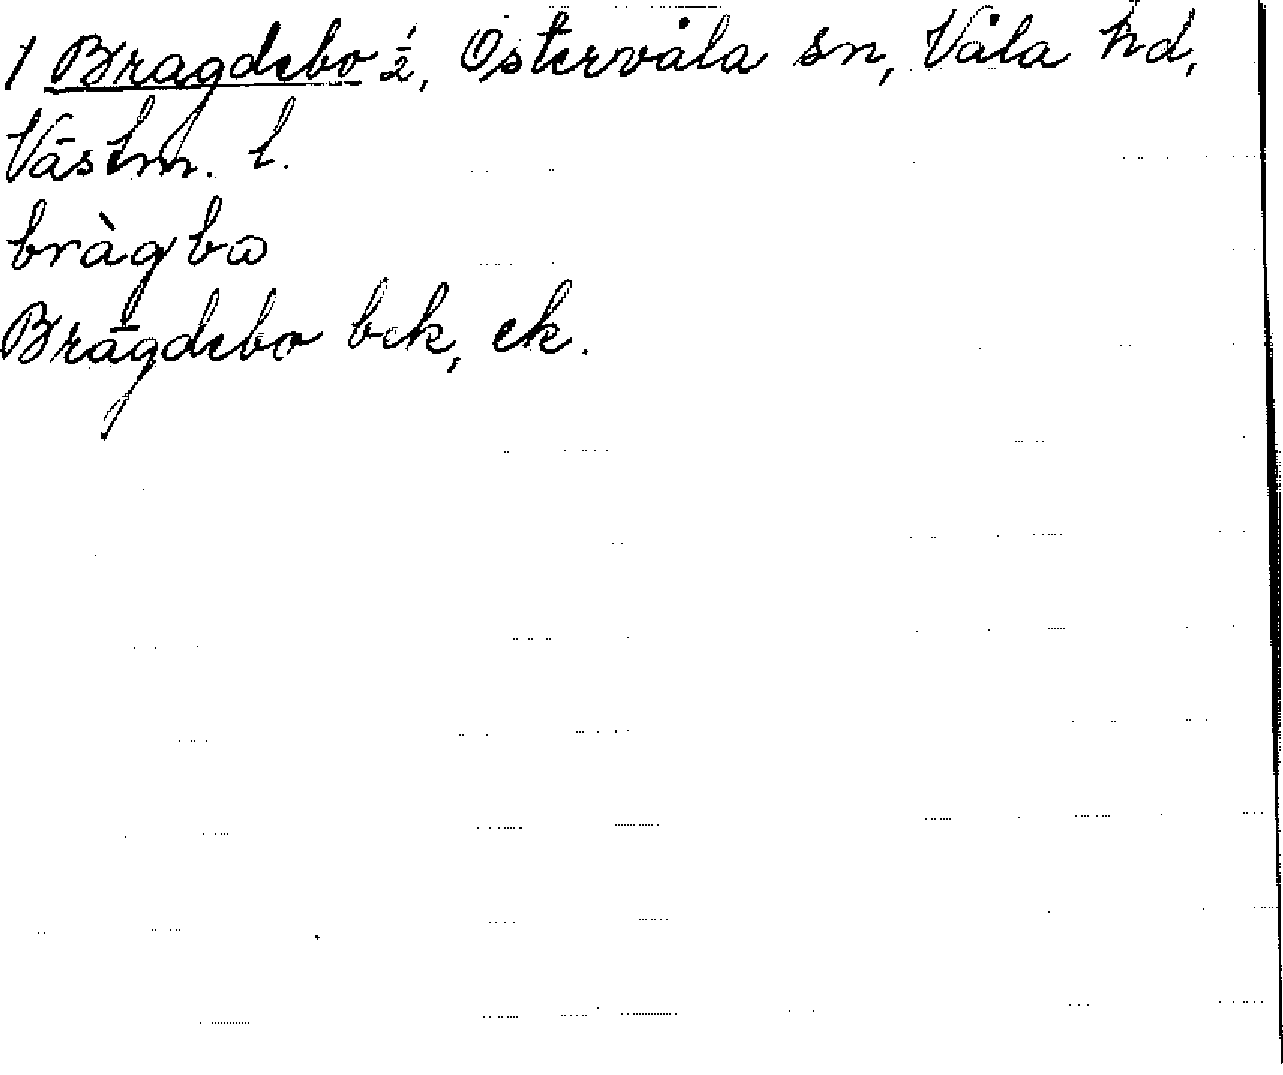 1 Bragdebo ½, Östervåla sn, Våla hd,
Västm. l.
bràgbɷ
Bragdebo bek, ek.